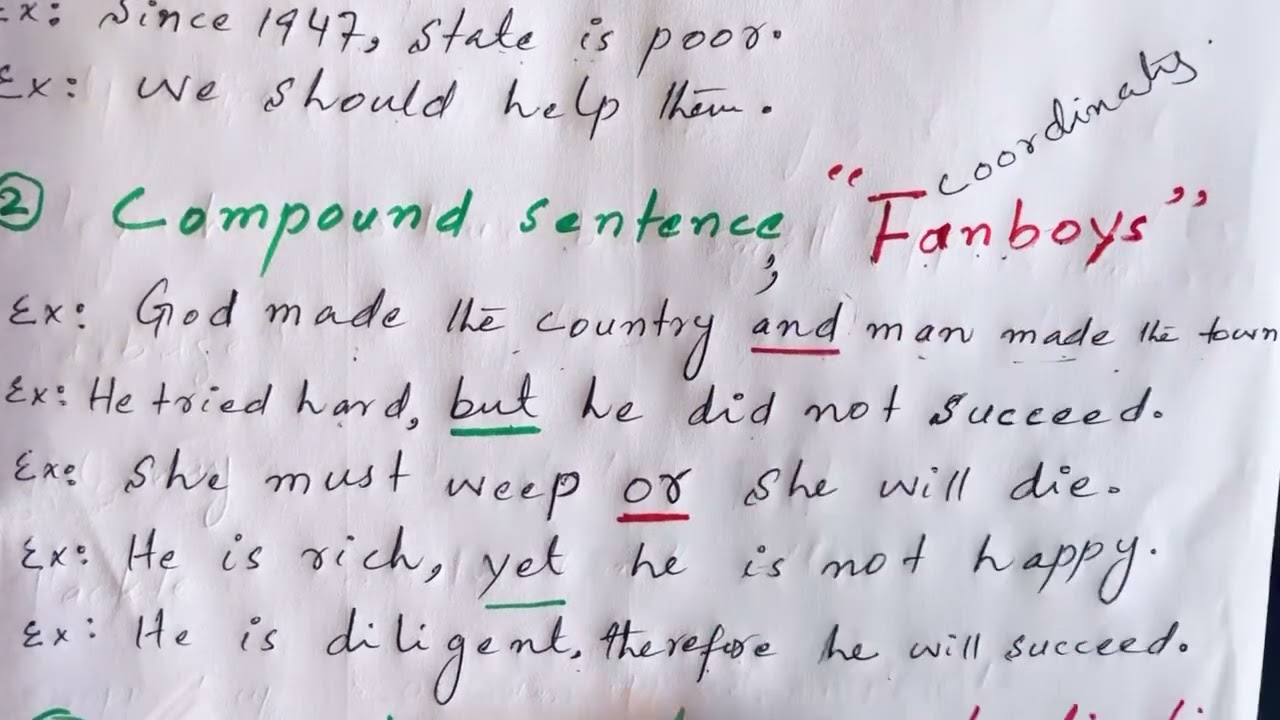 Ex: Since 1947, State is poor.
Ex: We should help them.
coordinatg
② Compound sentence, "Fanboys"
Ex: God made the country and man made the town
Ex: He tried hard, but he did not succeed.
Ex: She must weep or she will die.
Ex: He is rich, yet he is not happy.
Ex: He is diligent, therefore he will succeed.